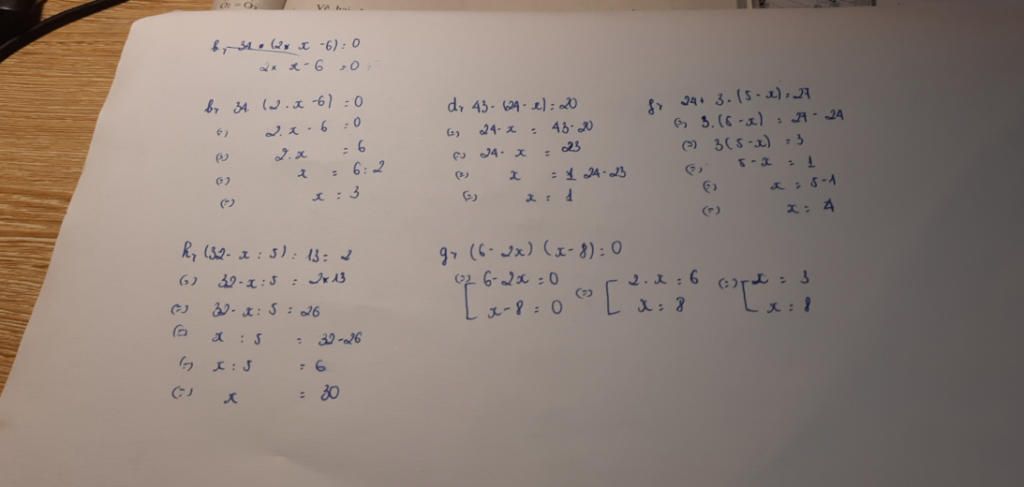 b, 34 . (2 x x - 6) = 0
2 x x - 6 = 0
b, 34 . (2 . x - 6) = 0
(=) 2 . x - 6 = 0
(=) 2 . x = 6
(=) x = 6 : 2
(=) x = 3
d, 43 - (24 - x) = 20
(=) 24 - x = 43 - 20
(=) 24 - x = 23
(=) x = 24 - 23
(=) x = 1
f, 24 + 3 . (5 - x) = 27
(=) 3 . (5 - x) = 27 - 24
(=) 3 (5 - x) = 3
(=) 5 - x = 1
(=) x = 5 - 1
(=) x = 4
h, (32 - x : 5) : 13 = 2
(=) 32 - x : 5 = 2 x 13
(=) 32 - x : 5 = 26
(=) x : 5 = 32 - 26
(=) x : 5 = 6
(=) x = 30
g, (6 - 2x) (x - 8) = 0
(=) [ 6 - 2x = 0 (=) [ 2 . x = 6 (=) [ x = 3
x - 8 = 0 x = 8 x = 8